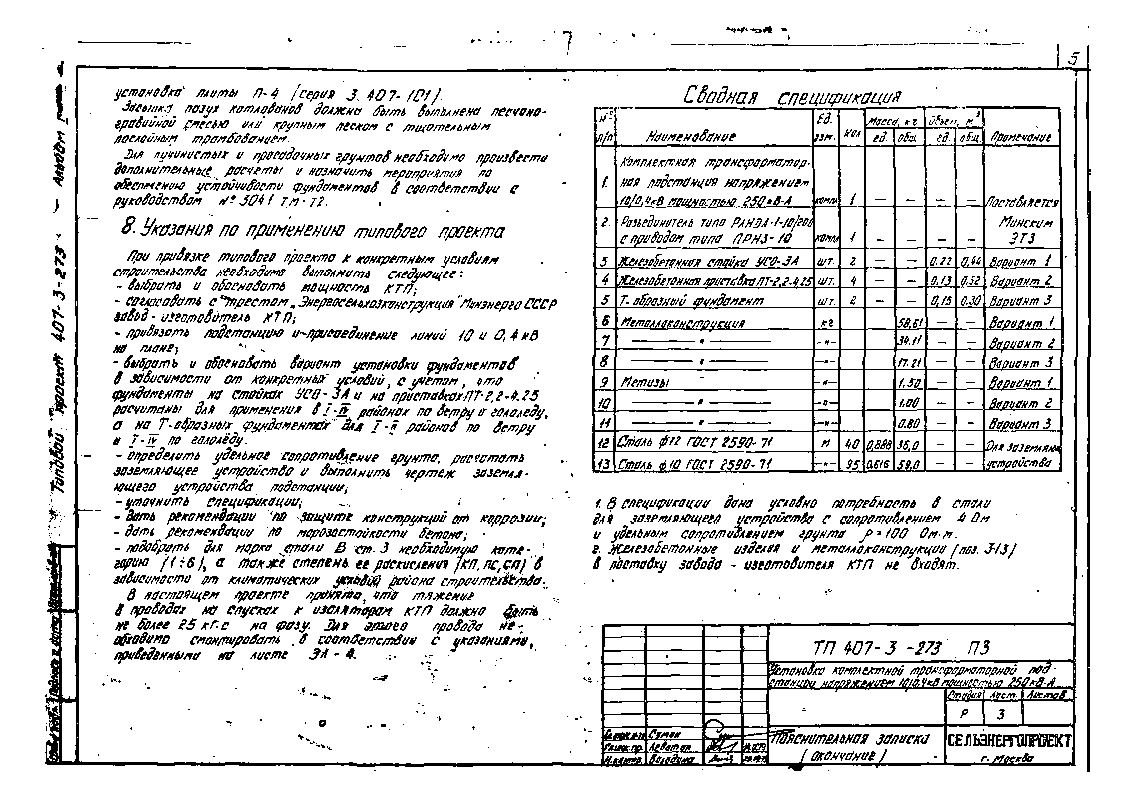 5
установка плиты П-4 (серия 3.407-101).
Засыпка пазух котлованов должна быть выполнена песчано-
гравийной смесью или крупным песком с тщательным
послойным трамбованием.
Для пучинистых и просадочных грунтов необходимо произвести
дополнительные расчеты и назначить мероприятия по
обеспечению устойчивости фундаментов в соответствии с
руководством № 5041 ТМ-Т2.
8. Указания по применению типового проекта
При привязке типового проекта к конкретным условиям
строительства необходимо выполнить следующее:
- выбрать и обосновать мощность КТП;
- согласовать с трестом „Энергосельхозконструкция" Минэнерго СССР
завод-изготовитель КТП;
- привязать подстанцию и присоединение линий 10 и 0,4 кВ
на плане;
- выбрать и обосновать вариант установки фундаментов
в зависимости от конкретных условий, с учетом, что
фундаменты на стойках УСО-3А и на приставках ПТ-2,2-4,25
расчитаны для применения в I-IV районах по ветру и гололеду,
а на Т-образных фундаментах для I-II районов по ветру
и I-IV по гололеду.
- определить удельное сопротивление грунта, расчитать
заземляющее устройство и выполнить чертеж заземля-
ющего устройства подстанции;
- уточнить спецификации;
- дать рекомендации по защите конструкций от коррозии;
- дать рекомендации по морозостойкости бетона;
- подобрать для марки стали В ст. 3 необходимую кате-
горию (1÷6), а также степень ее раскисления (КП, ПС, СП) в
зависимости от климатических условий района строительства.
В настоящем проекте принято, что тяжение
в проводах на спусках к изоляторам КТП должно быть
не более 25 кГ.с на фазу. Для этого провода не-
обходимо смонтировать в соответствии с указаниями,
приведенными на листе ЭЛ-4.
Сводная спецификация
№ п/п Наименование Ед. изм. Кол Масса, кг ед. общ. Объем, м³ ед. общ. Примечание
1. Комплектная трансформатор-
ная подстанция напряжением
10/0,4кВ мощностью 250 кВ·А компл 1 — — — — Поставляется
2. Разъединитель типа РЛНДА-1-10/200 Минским
с приводом типа ПРНЗ-10 компл 1 — — — — ЭТЗ
3 Железобетонная стойка УСО-3А шт. 2 — — 0,22 0,44 Вариант 1
4 Железобетонная приставка ПТ-2,2-4,25 шт. 4 — — 0,13 0,52 Вариант 2
5 Т.образный фундамент шт. 2 — — 0,15 0,30 Вариант 3
6 Металлоконструкция кг 58.61 — — Вариант 1
7 — " — —"— 34.11 — — Вариант 2
8 — " — —"— 17.21 — — Вариант 3
9 Метизы —"— 1.50 — — Вариант 1
10 — " — —"— 1.00 — — Вариант 2
11 — " — —"— 0.80 — — Вариант 3
12 Сталь ф12 ГОСТ 2590-71 м 40 0,888 36,0 — — Для заземляющ.
13 Сталь ф10 ГОСТ 2590-71 —"— 95 0,616 59,0 — — устройства
1. В спецификации дана условно потребность в стали
для заземляющего устройства с сопротивлением 4 Ом
и удельным сопротивлением грунта ρ=100 Ом·м.
2. Железобетонные изделия и металлоконструкции (поз. 3-13)
в поставку завода-изготовителя КТП не входят.
ТП 407-3-273 ПЗ
Установка комплектной трансформаторной под-
станции напряжением 10/0.4кВ мощностью 250 кВ·А
Стадия Лист Листов
Р 3
Пояснительная записка
(окончание)
СЕЛЬЭНЕРГОПРОЕКТ
г. Москва
Типовой проект 407-3-273 Альбом